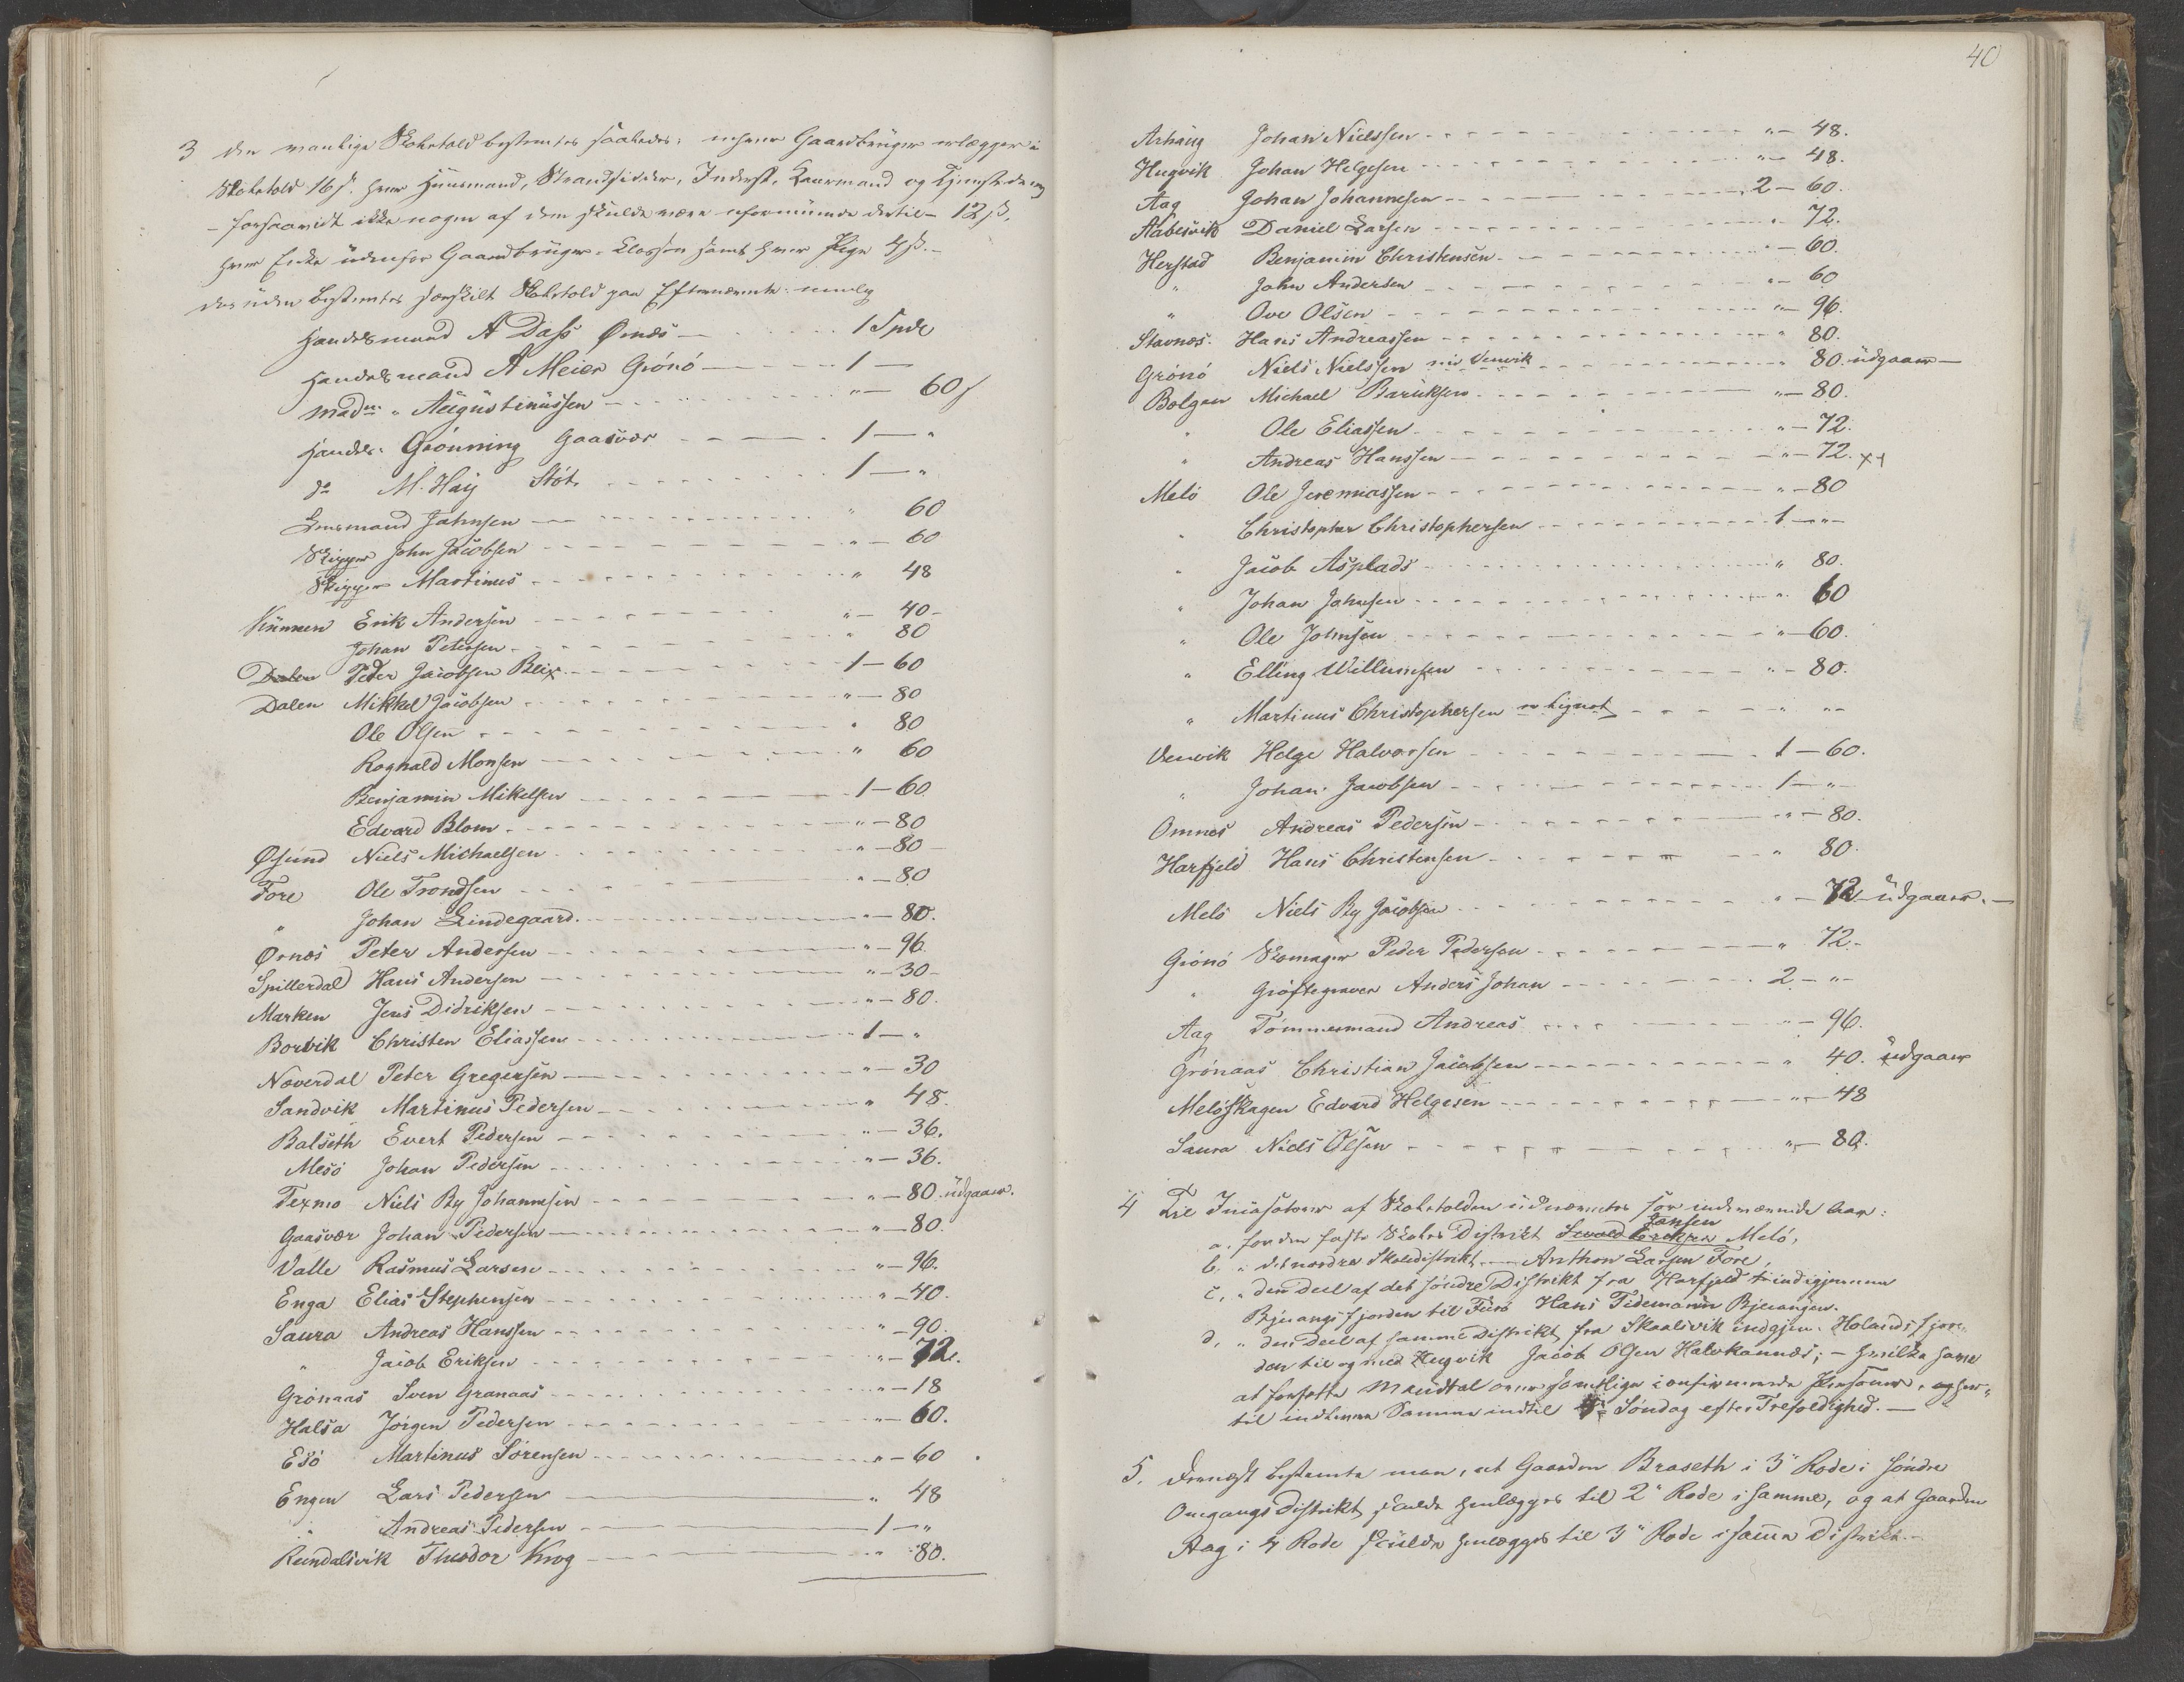 3 den manlige Skoletold bestemtes saaledes: enhver Gaardbrüger erlægger i
Skoletold 16 s. hver Huusmand, Strandsidder, Inderst, Kaarmand og Tjenestedreng
- forsaavidt ikke nogen af dem skulde være uformuende dertil - 12 s.
hver Enke udenfor Gaardbrüger-Classen samt hver Pige 4 s. -
desuden bestemtes særskilt Skoletold paa Efternævnte: nemlig
Handelsmand A Dass Ørnes - 1 Spd
Handelsmand A Meier Grönö - 1 -
Mad. " Augustinussen - " - 60 s
Handels. Grönning Gaasvær - 1 - "
do M. Hay Stöt - 1 - "
Lensmand Jahnsen - " 60
Skipper John Jacobsen - " - 60
Skipper Martinus - " 48
Erik Andersen - " - 40 -
Johan Petersen - " 80
Dalen Peder Jacobsen Blix - 1 - 60
Dalen Mikkel Jacobsen - " - 80
Ole Olsen - " 80
Rognald Monsen - " 60
Benjamin Mikelsen - 1 - 60
Edvard Blom - " - 80
Øsund Niels Michaelsen - " - 80 -
Fore Ole Trondsen - " - 80
" Johan Lindegaard - " - 80.
Ørnes Peter Andersen - " - 96
Spillerdal Hans Andersen - " - 30 -
Marken Jens Didriksen - " - 80.
Borvik Christen Eliassen - 1 - "
Noverdal Peter Gregersen - " - 30
Sandvik Martinus Pedersen - " 48.
Balseth Evert Pedersen - " - 36.
Mesö Johan Pedersen - " - 36.
Texmo Niels By Johannesen - " - 80. udgaaer.
Gaasvær Johan Pedersen - " - 80.
Valle Rasmus Larsen - " - 96.
Enga Elias Stephensen - " - 40.
Saura Andreas Hanssen - " - 90.
" Jacob Eriksen - " - 72.
Grönaas Sven Granaas - " - 18
Halsa Jörgen Pedersen - " - 60.
Esö Martinus Sörensen - " - 60
Engen Lars Pedersen - " 48
" Andreas Pedersen - 1 - "
Rendalsvik Theodor Krog - " 80.
40
Arhaug Johan Nielssen - " - 48.
Hugvik Johan Helgesen - " - 48.
Aag Johan Johannesen - 2 - 60.
Aabesvik Daniel Larsen - " 72.
Herstad Benjamin Christensen - " - 60.
" John Andersen - " - 60
" Ove Olsen - " - 96.
Stavnes. Hans Andreassen - " 80.
Grönö Niels Nielssen nu Venvik - " 80. udgaaer -
Bolgan Michael Baruksen - " - 80.
" Ole Eliassen - " - 72.
" Andreas Hanssen - " - 72. x+
Melö Ole Jeremiassen - " - 80
" Christopher Christophersen - 1 - " -
" Jacob Asplads - " 80.
" Johan Johnsen - " 60
" Ole Johnsen - " - 60.
" Elling Willumsen - " - 80.
" Martinus Christophersen er lignet - " " -
Venvik Helge Halvorsen - 1 - 60.
" Johan Jacobsen - 1 - " -
Omnes Andreas Pedersen - " - 80.
Harfjeld Hans Christensen - " 80.
Melö Niels By Jacobsen - " - 72 - udgaaer. -
Grönö Skomager Peder Pedersen - " 72. -
" Gröftegraver Anders Johan - 2 - " -
Aag Tömmermand Andreas - " - 96.
Grönaas Christian Jacobsen - " 40. udgaaer
Melöskagen Edvard Helgesen - " - 48
Saura Niels Olsen - " - 80.
4 Til Incasatorer af Skoletolden udnævntes for indeværende Aar:
Jansen
a. for den faste Skoles Distrikt Melö,
b. " det nordre Skoledistrikt - Anthon Larsen Fore,
c. " den Deel af det söndre Distrikt fra Harfjeld indigjennem
Bjerangsfjorden til Furö Hans Tidemann Bjerangen.
d. " den Deel af samme Distrikt fra Skaalsvik indgjen. Holandsfjor-
den til og med Hugvik Jacob Olsen Halvkannes; - hvilke have
at forfatte Mandtal over samtlige confirmerede Personer, og
til indlevere Samme indtil Söndag efter Trefoldighed. -
5. Dernæst bestemte man, at Gaarden Braseth i 3de Rode i söndre
Omgangsdistrikt skulde henlægges til 2den Rode i samme, og at Gaarden
Aag i 4 Rode skulde henlægges til 3die Rode i samme Distrikt. -